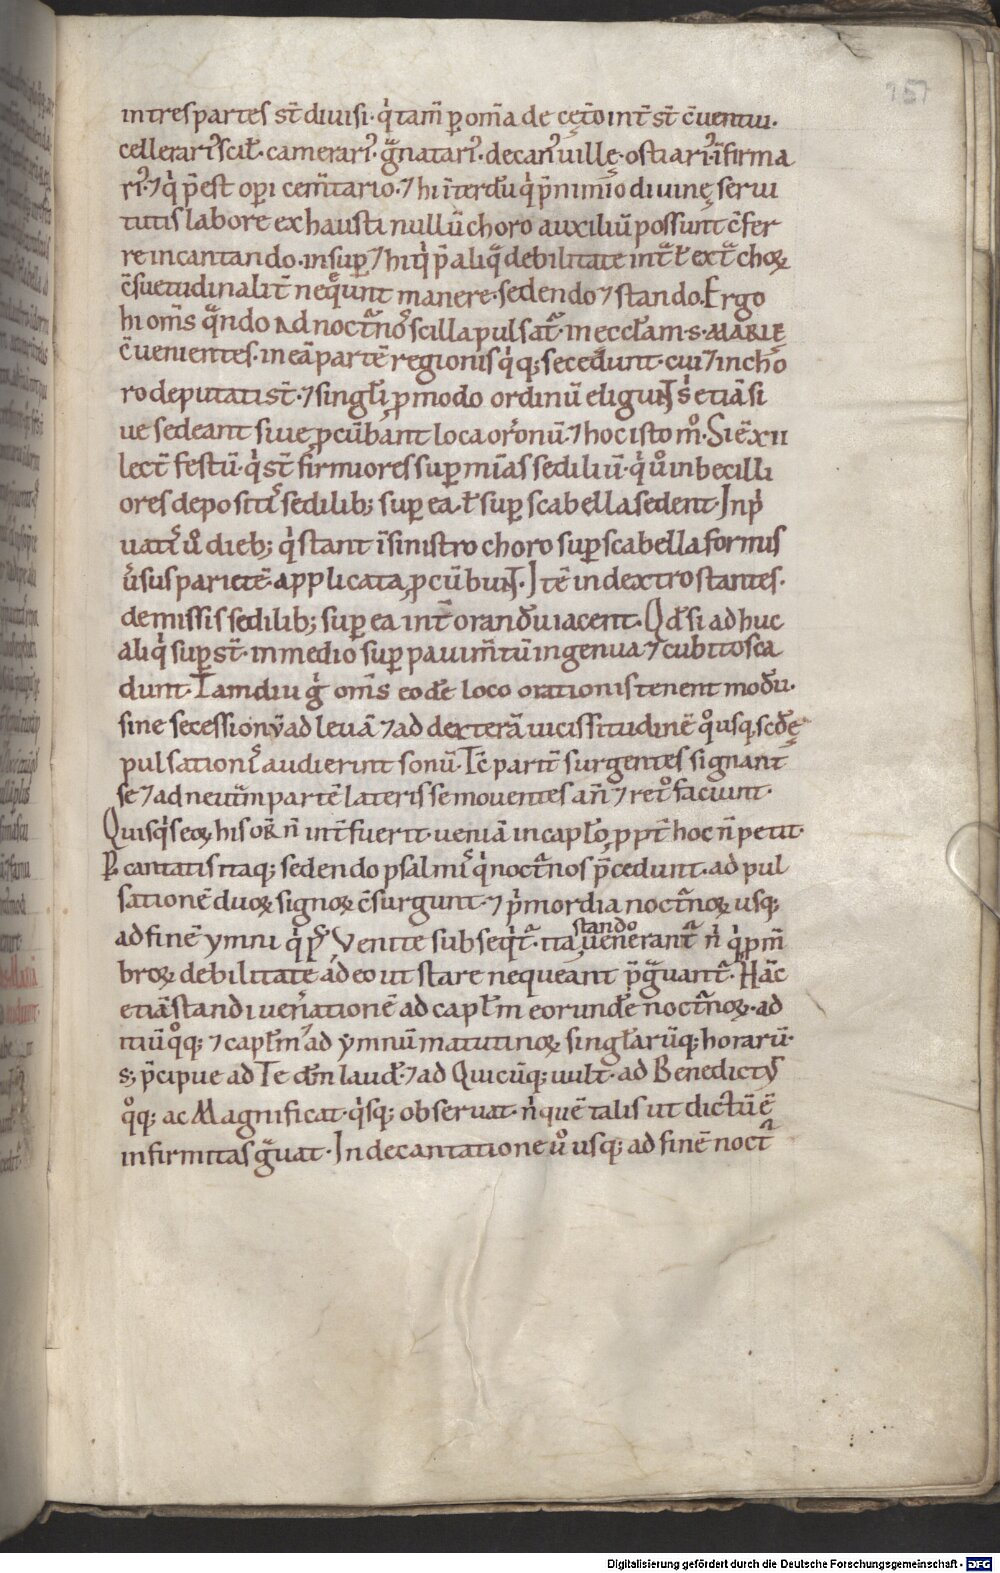 157
in tres partes st̄ diuisi· q̇ tam̄ ꝑ om̄a de cęt̄o int̄ st̄ c̄uentui·
cellerariꝰ scil̄· camerariꝰ· g̃natariꝰ· decanꝰ uillę· ostiariꝰ· īfirma
riꝰ· ⁊ q̇ p̄est oꝑi cem̄tario· ⁊ hi īterdū q̇ p̄ nimio diuinę serui
tutis labore exhausti nullū choro auxiliū possunt c̄fer
re in cantando· insuꝑ ⁊ hi q̇ p̄ aliq̃ debilitate int̃ ł ext̃ choꝝ
c̄suetudinalit̄ neq̃unt manere· sedendo ⁊ stando. Ergo
hi om̄s q̃ndo ad noct̃nos scilla pulsat̃· in eccl̄am· s· MARIĘ
c̄uenientes· in eā partē regionis q̇q; secedunt· cui ⁊ in cho
ro deputati st̄· ⁊ singl̄i ꝓ modo ordinū eligunt s' etiā si
ue sedeant siue ꝓcūbant loca or̄onū· ⁊ hoc isto mͦ· Si ē xii
lect̄ festū· q̇ st̄ firmiores suꝑ mī̄as sediliū· q̇ uͦ inbecilli
ores depositis sedilib; suꝑ ea· ł suꝑ scabella sedent· In p̍
uatis uͦ dieb; q̇ stant ī sinistro choro suꝑ scabella formis
ūsus parietē applicata, ꝓcūbunt· Itē in dextro stantes·
demissis sedilib; suꝑ ea int̄ orandū iacent· Qd̄ si adhuc
aliq̇ suꝑst̄· in medio suꝑ pauim̄tū in genua ⁊ cubitos ca
dunt· Tamdiu g̍ om̄s eodē loco orationis tenent modū·
sine secessionū ad leuā ⁊ ad dexterā uicissitudinē qͦusq; scdę
pulsationis audierint sonū· Tc̄ part̄ surgentes signant
se ⁊ ad neut̃m partē lateris se mouentes an̄ ⁊ ret̊ faciunt·
Quisq̇s eoꝝ his or̄ n̄ int̄fuerit· ueniā in capl̄o, ꝓpt̄ hoc n̄ petit·
P cantatis itaq; sedendo psalmis q̇ noct̃nos p̄cedunt· ad pul
sationē duoꝝ signoꝝ c̄surgunt· ⁊ p̍mordia noct̃noꝝ usq;
ad finē ymni q̇ Venite subseq̇t̃· ita stando uenerant̃ n̍ q̇ p̄ m̄
broꝝ debilitate adeo ut stare nequeant p̄g̃uant̃· Hāc
etiā standi uenerationē ad capl̄m eorundē noct̃noꝝ· ad
tiūqͦq; ⁊ capl̄m ad ymnū matutinoꝝ singl̄arūq; horarū·
s; p̄cipue ad Te dm̄ laud̄· ⁊ ad Quicūq; uult· ad Benedictꝰ
qͦq; ac Magnificat· q̇sq; obseruat· n̍ quē talis ut dictū ē
infirmitas g̃uat· In decantatione uͦ usq; ad finē noct̃
Digitalisierung gefördert durch die Deutsche Forschungsgemeinschaft - DFG